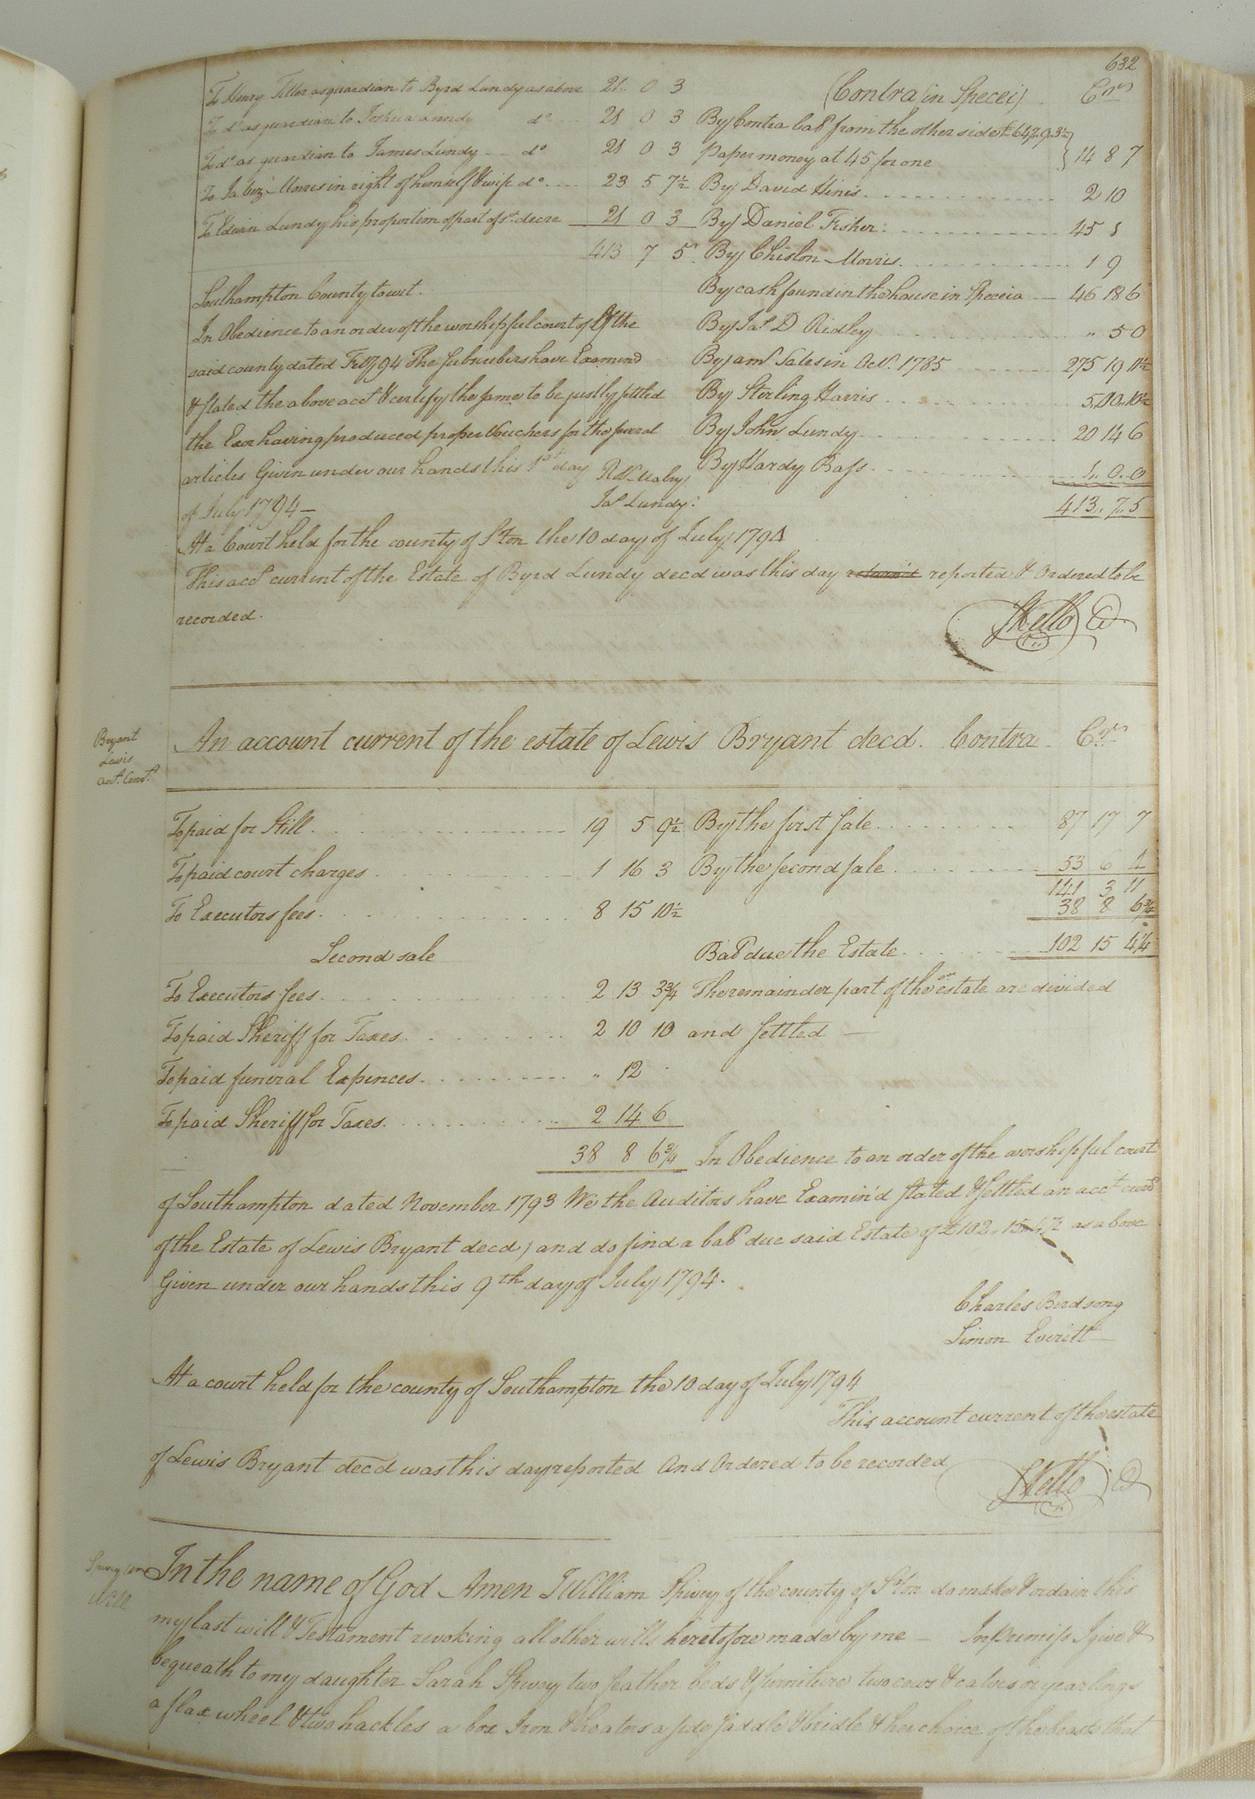 632
To Henry Tiller as guardian to Byrd Lundy as above 21 0 3 (Contra in Specei) Crs
To do as guardian to Joshua Lundy do 21 0 3 By Contra bale from the other side £ 642.9.3½
To do as guardian to James Lundy do 21 0 3 Paper money at 45 for one } 14 8 7
To Morris in right of himself & wife do 23 5 7½ By David Hines 2 10
To Edwin Lundy his proportion of part of sd decre 21 0 3 By Daniel Fisher 45 1
413 7 5 By Chislon Morris 1 9
Southampton County towit. By cash found in the house in Specia 46 18 6
In Obedience to an order of the worshipful court of the By Jas D Ridley " 5 0
said county dated 1794 The subscribers have Examind By amt Sales in Oct. 1785 275 19 11½
& stated the above acct & certify the same to be justly settled By Sterling Harris 5.00.10½
the Exor having produced proper Vouchers for the several By John Lundy 20 14 6
articles Given under our hands this 1st day By Hardy Bass 1. 0. 0
of July 1794— Jas Lundy 413. 7. 5
At a Court held for the county of Ston the 10 day of July 1794
This acct current of the Estate of Byrd Lundy decd was this day return'd reported & Ordered to be
recorded.
SKello Cl
Bryant
Lewis
Acct Curt.
An account current of the estate of Lewis Bryant decd. Contra Crs
To paid for Still 19 5 9½ By the first sale 87 17 7
To paid court charges 1 16 3 By the second sale 53 6 4
141 3 11
To Executors fees 8 15 10½ 38 8 6¾
Second sale Bale due the Estate 102 15 4¼
To Executors fees 2 13 3¾ The remainder part of the estate are divided
To paid Sheriff for Taxes 2 10 10 and settled —
To paid funeral Expences " 12
To paid Sheriff for Taxes 2 14 6
38 8 6¾ In Obedience to an order of the worshipful court
of Southampton dated November 1793 We the Auditors have Examin'd stated & settled an acct curt
of the Estate of Lewis Bryant decd, and do find a bale due said Estate of £ 102. 15. as above
Given under our hands this 9th day of July 1794.
Charles Birdsong
Simon Everitt
At a court held for the county of Southampton the 10 day of July 1794
This account current of the estate
of Lewis Bryant decd was this day reported And Ordered to be recorded
SKello Cl
Will
In the name of God Amen I William Spivey of the county of Ston do make & ordain this
my last will & Testament revoking all other wills heretofore made by me — Inprimiss I give &
bequeath to my daughter Sarah Spivey two feather beds & furniture two cows & calves or yearlings
a flax wheel & two hackles a box Iron & heaters a side saddle & bridle & her choice of the beasts that